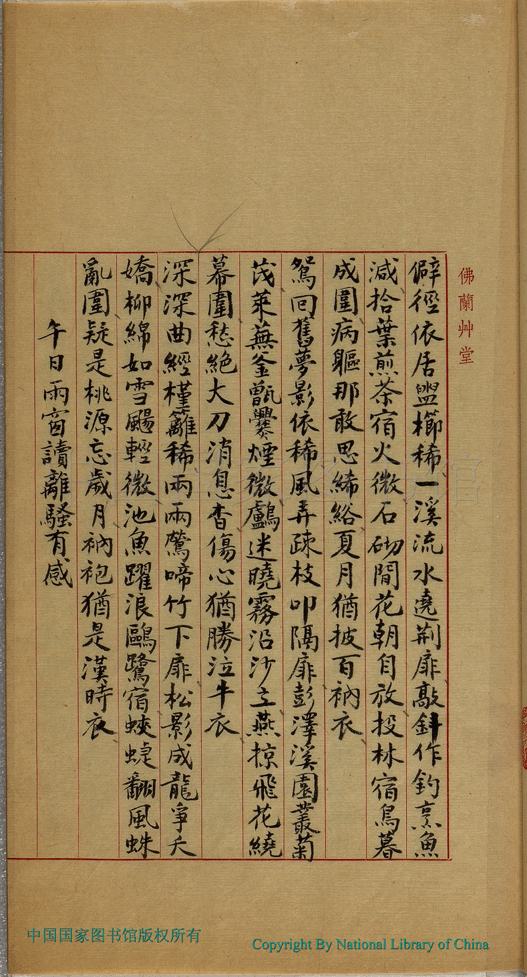 佛蘭艸堂
僻徑依居盥櫛稀一溪流水遶荆扉敲針作釣烹魚
減拾葉煎茶宿火微石砌閒花朝自放投林宿鳥暮
成圍病軀那敢思絺綌夏月猶披百衲衣
鴛回舊夢影依稀風弄疎枝叩隔扉彭澤溪園叢菊
茂萊蕪釜甑爨煙微鸕迷曉霧沿沙立燕掠飛花繞
幕圍愁絶大刀消息杳傷心猶勝泣牛衣
深深曲經槿籬稀兩兩鶯啼竹下扉松影成龍爭夭
嬌柳綿如雪颺輕微池魚躍浪鷗鷺宿蛺蜨翻風蛛
亂圍疑是桃源忘歲月衲袍猶是漢時衣
午日雨窗讀離騷有感
中国国家图书馆版权所有
Copyright By National Library of China